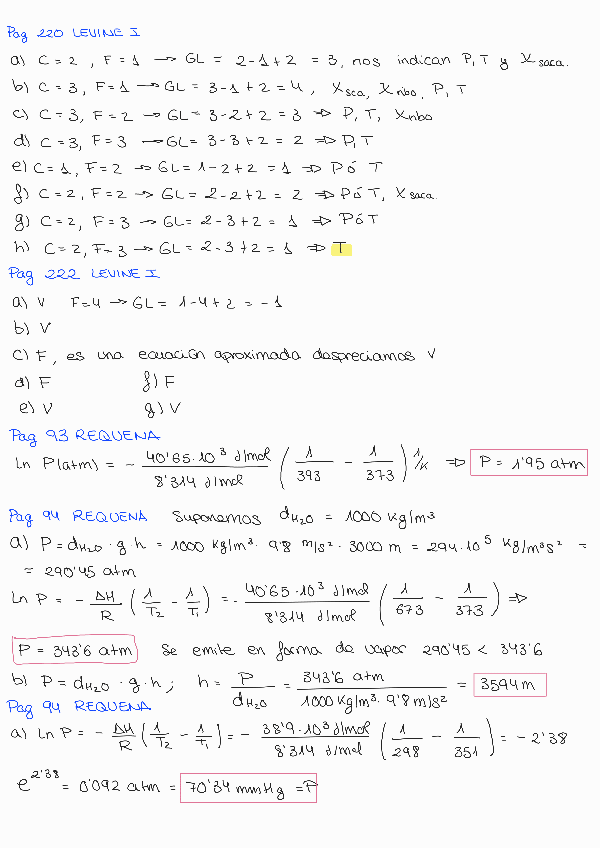 Pag 220 LEVINE I
a) C = 2 , F = 1 → GL = 2-1+2 = 3, nos indican P, T y Xsaca.
b) C = 3, F = 1 → GL = 3-1+2 = 4, Xsca, Xnbo, P, T
c) C = 3, F = 2 → GL = 3-2+2 = 3 ⇒ P, T, Xnbo
d) C = 3, F = 3 → GL = 3-3+2 = 2 ⇒ P, T
e) C = 1, F = 2 → GL = 1-2+2 = 1 ⇒ P ó T
f) C = 2, F = 2 → GL = 2-2+2 = 2 ⇒ P ó T, Xsaca.
g) C = 2, F = 3 → GL = 2-3+2 = 1 ⇒ P ó T
h) C = 2, F = 3 → GL = 2-3+2 = 1 ⇒ T
Pag 222 LEVINE I
a) V F=4 → GL = 1-4+2 = -1
b) V
c) F, es una ecuación aproximada despreciamos V
d) F f) F
e) V g) V
Pag 93 REQUENA
Ln P(atm) = - 40'65·10³ J/mol / 8'314 J/mol (1/393 - 1/373) 1/K ⇒ P = 1'95 atm
Pag 94 REQUENA Suponemos dH₂O = 1000 kg/m³
a) P = dH₂O · g · h = 1000 kg/m³ · 9'8 m/s² · 3000 m = 294·10⁵ kg/m³s² =
= 290'45 atm
Ln P = - ΔH/R (1/T₂ - 1/T₁) = - 40'65·10³ J/mol / 8'314 J/mol (1/673 - 1/373) ⇒
P = 343'6 atm Se emite en forma de vapor 290'45 < 343'6
b) P = dH₂O · g · h ; h = P/dH₂O = 343'6 atm / 1000 kg/m³ · 9'8 m/s² = 3594 m
Pag 94 REQUENA
a) Ln P = - ΔH/R (1/T₂ - 1/T₁) = - 38'9·10³ J/mol / 8'314 J/mol (1/298 - 1/351) = - 2'38
e^2'38 = 0'092 atm = 70'34 mmHg = P